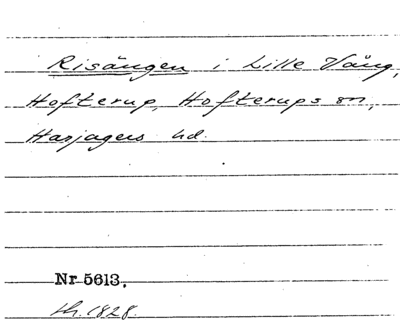 Risängen i Lille Vång,
Hofterup, Hofterups sn,
Harjagers hd.
Nr 5613.
1828.